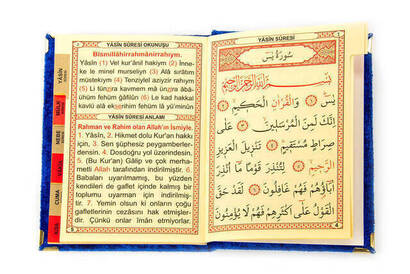 YÂSİN SÛRESİ OKUNUŞU
Bismillâhirrahmânirrahıym.
Yâsîn (1) Vel kur'ânil hakiym (2) İnne-
ke le minel murseliyn (3) Alâ sırâtım
müstekıym (4) Tenziylel aziyzir rahıym
(5) Li tünzira kavmem mâ ünzira âbâ-
ühüm fehüm ğâfilûn (6) Le kad hakkal
kavlü alâ ekserihim fehüm lâ yü'minûn
YÂSİN SÛRESİ ANLAMI
Rahman ve Rahim olan Allah'ın İsmiyle.
1. Yâsîn, 2. Hikmet dolu Kur'an hakkı
için, 3. Sen şüphesiz peygamberler-
densin. 4. Dosdoğru yol üzerindesin.
5. (Bu Kur'an) Gâlip ve çok merha-
metli Allah tarafından indirilmiştir. 6.
Babaları uyarılmamış, bu yüzden
kendileri de gaflet içinde kalmış bir
toplumu uyarman için indirilmiş-
tir. 7. Yemin olsun ki onların çoğu
gafletlerinin cezasını hak etmişler-
dir. Çünkü onlar îman etmiyorlar.
YÂSİN
MÜLK
NEBE
CUMA
YÂSİN SÛRESİ
سُورَةُ يٰسٓ
بِسْمِ اللّٰهِ الرَّحْمٰنِ الرَّحِيمِ
يٰسٓ ﴿١﴾ وَالْقُرْاٰنِ الْحَكِيمِ ﴿٢﴾
اِنَّكَ لَمِنَ الْمُرْسَلِينَ ﴿٣﴾ عَلٰى
صِرَاطٍ مُسْتَقِيمٍ ﴿٤﴾ تَنْزِيلَ الْعَزِيزِ
الرَّحِيمِ ﴿٥﴾ لِتُنْذِرَ قَوْمًا مَٓا اُنْذِرَ
اٰبَٓاؤُ۬هُمْ فَهُمْ غَافِلُونَ ﴿٦﴾ لَقَدْ حَقَّ
الْقَوْلُ عَلٰٓى اَكْثَرِهِمْ فَهُمْ لَا يُؤْمِنُونَ